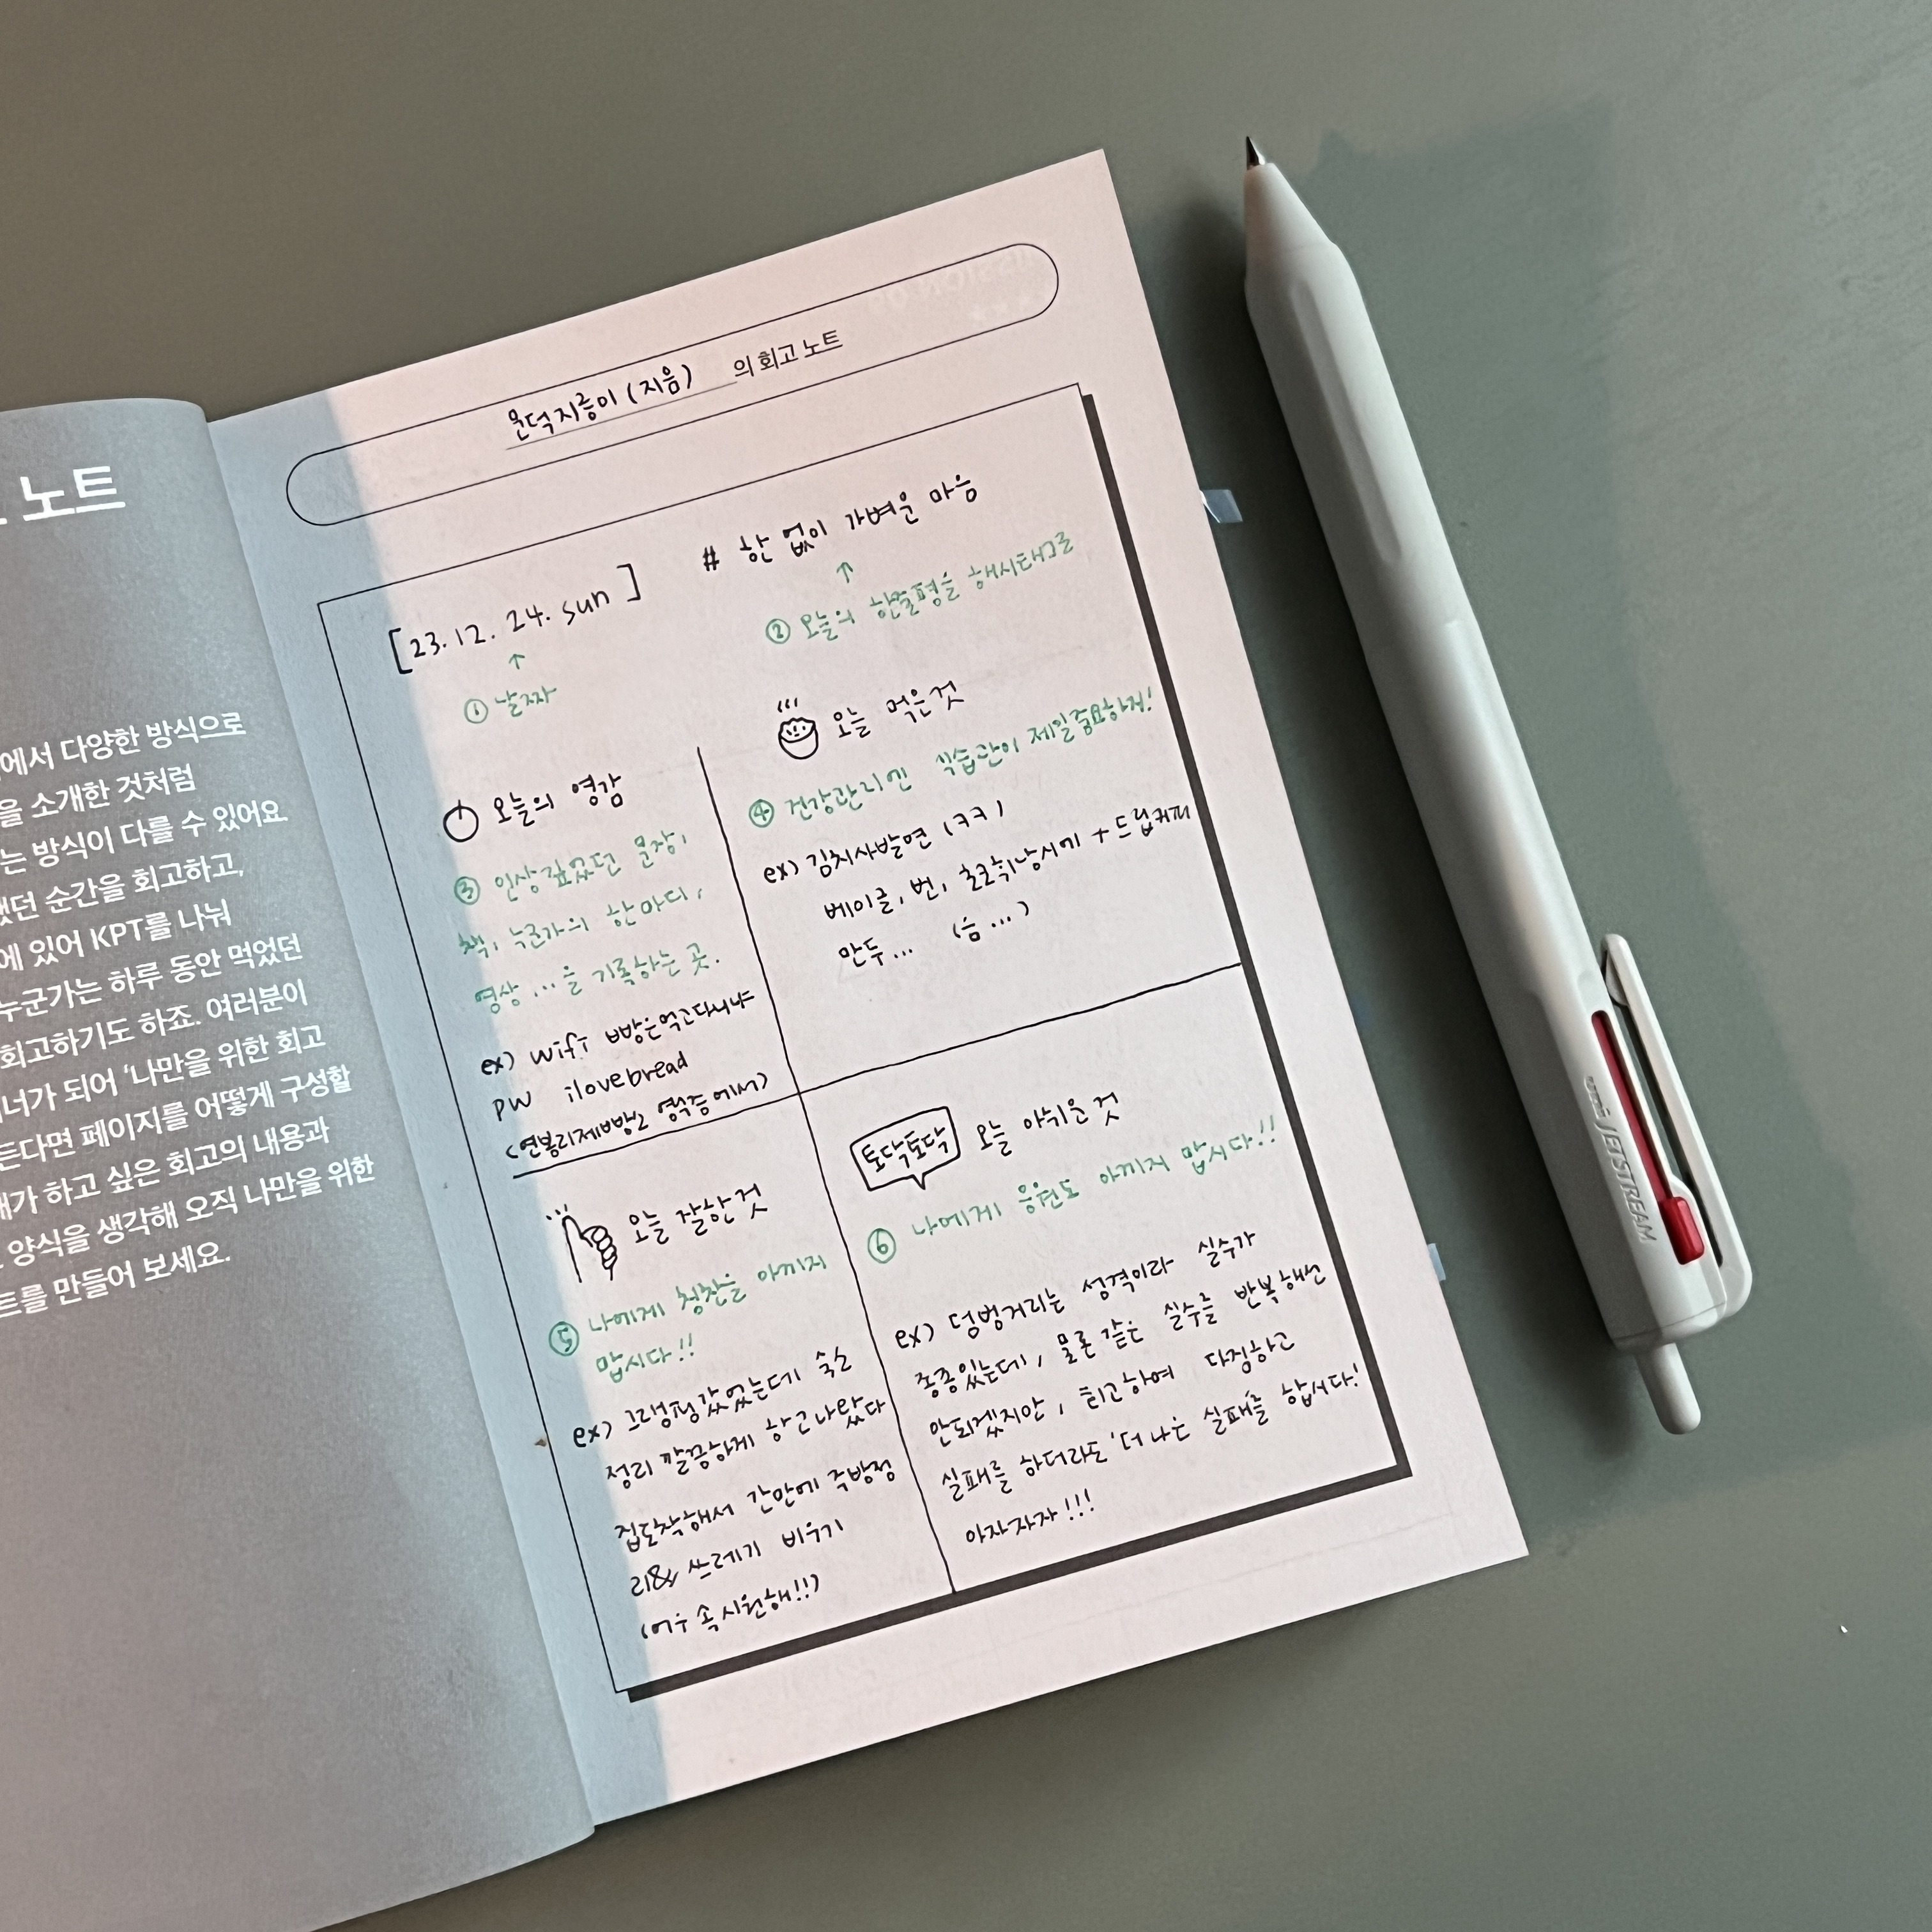 노트
에서 다양한 방식으로
을 소개한 것처럼
는 방식이 다를 수 있어요.
했던 순간을 회고하고,
에 있어 KPT를 나눠
누군가는 하루 동안 먹었던
회고하기도 하죠. 여러분이
너가 되어 '나만을 위한 회고
든다면 페이지를 어떻게 구성할
내가 하고 싶은 회고의 내용과
양식을 생각해 오직 나만을 위한
트를 만들어 보세요.
문덕지릉이 (지음) 의 회고 노트
[23. 12. 24. sun]
① 날짜
# 한 없이 가벼운 마음
② 오늘의 한줄평을 해시태그로
오늘의 영감
③ 인상깊었던 문장,
책, 누군가의 한마디,
영상 ... 을 기록하는 곳.
ex) wifi 빵은먹고다니냐
PW ilovebread
<연봉리제빵소 영수증에서>
오늘 먹은것
④ 건강관리엔 식습관이 제일중요하지!
ex) 김치사발면 (ㅋㅋ)
베이글, 번, 초코휘낭시에 + 드립커피
만두... (음...)
오늘 잘한것
⑤ 나에게 칭찬을 아끼지
맙시다!!
ex) 그랭핑갔었는데 숙소
정리 깔끔하게 하고나왔다
집도착해서 간만에 주방정
리&쓰레기 비우기
(어우 속 시원해!!)
토닥토닥 오늘 아쉬운 것
⑥ 나에게 응원도 아끼지 맙시다!!
ex) 덤벙거리는 성격이라 실수가
종종있는데, 물론 같은 실수를 반복해선
안되겠지만, 회고하며 다짐하고
실패를 하더라도, 더 나은 실패를 합시다!
아자자자!!!
uni JETSTREAM